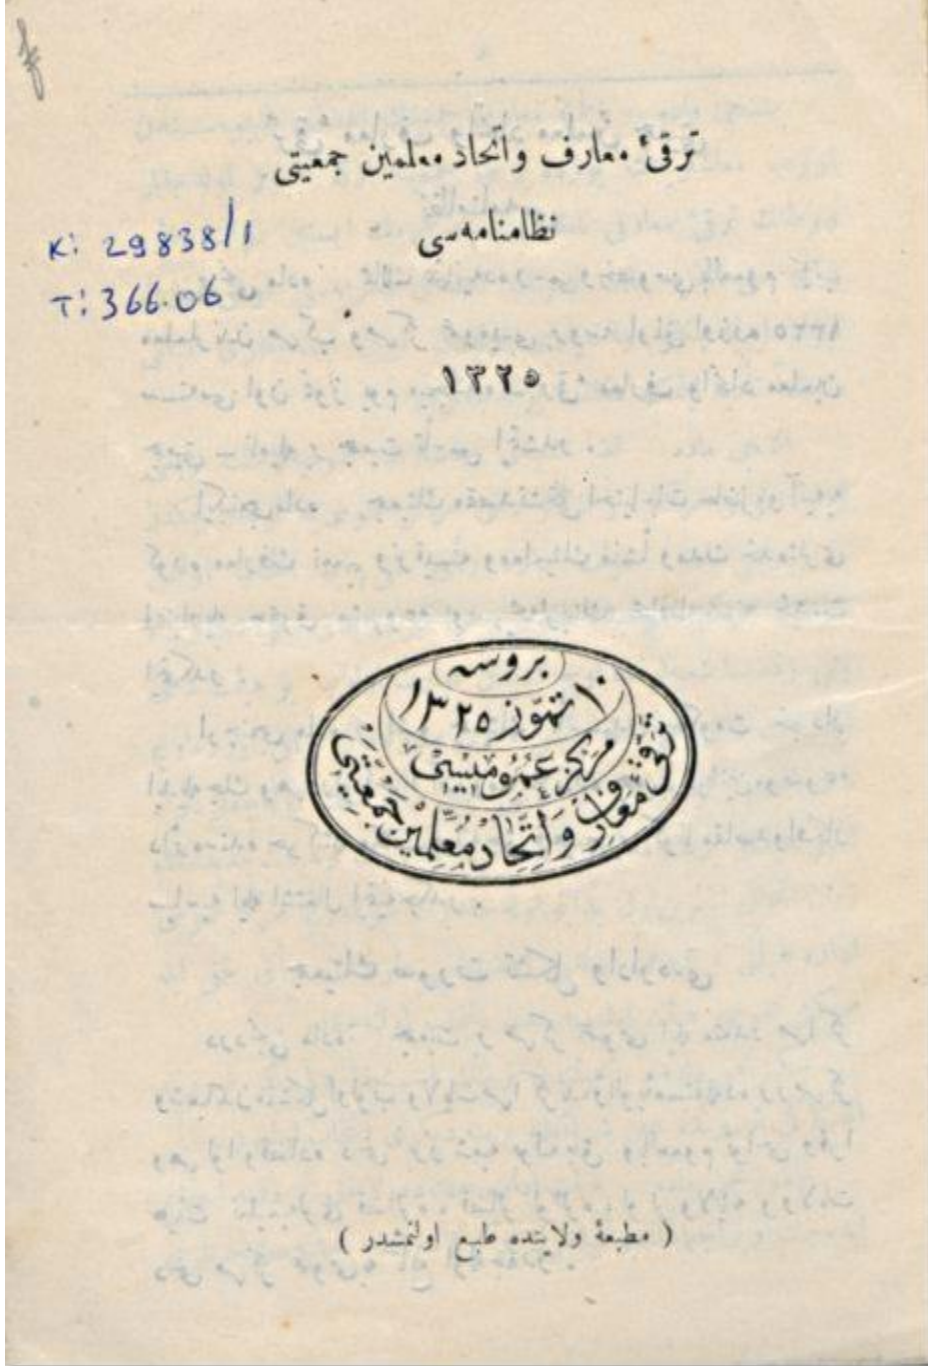 ترقیٔ معارف و اتحاد معلمین جمعیتی
نظامنامه‌سی
K: 29838/1
T: 366.06
١٣٢٥
بروسه
١٠ تموز ١٣٢٥
مرکز عمومیسی
ترقی معارف و اتحاد معلمین جمعیتی
( مطبعهٔ ولایتده طبع اولنمشدر )